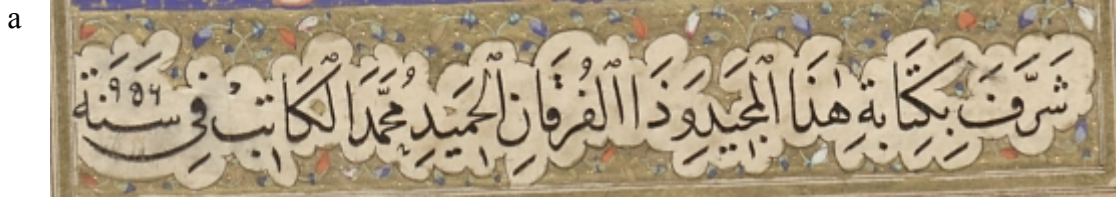 a
شَرَّفَ بِكِتَابَةِ هٰذَا الْمَجِيدِ وَذَا الْفُرْقَانِ الْحَمِيدِ مُحَمَّدَ الْكَاتِبُ فِي سَنَة ۹۵۶